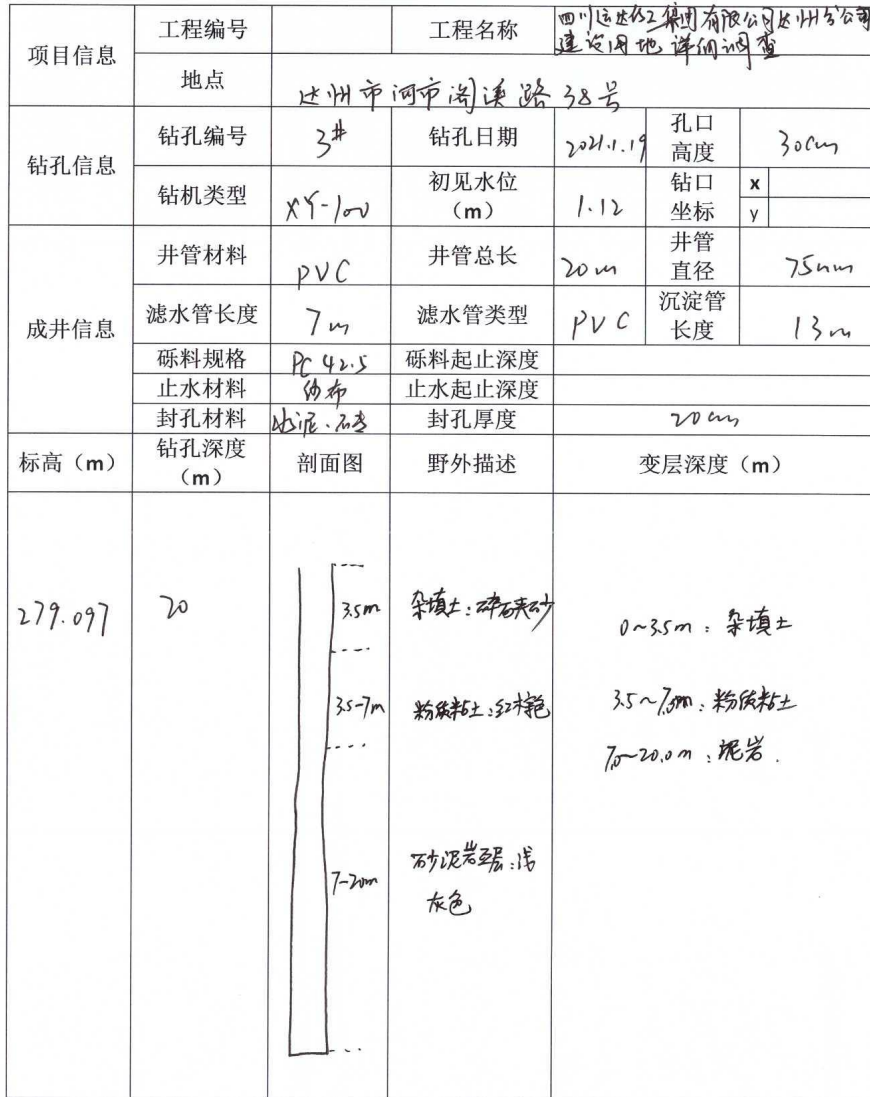 项目信息 工程编号 工程名称 四川运达化工集团有限公司达州分公司
建设用地详细调查
地点 达州市河市 38号
钻孔信息 钻孔编号 3# 钻孔日期 2021.1.19 孔口高度 30cm
钻机类型 XY-100 初见水位(m) 1.12 钻口坐标 x
y
成井信息 井管材料 PVC 井管总长 20m 井管直径 75mm
滤水管长度 7m 滤水管类型 PVC 沉淀管长度 13m
砾料规格 PC 42.5 砾料起止深度
止水材料 纱布 止水起止深度
封孔材料 水泥、 封孔厚度 20cm
标高(m) 钻孔深度(m) 剖面图 野外描述 变层深度(m)
279.097 20 3.5m 杂填土:碎石夹砂 0~3.5m:杂填土
3.5-7m 粉质粘土:红棕色 3.5~7.0m:粉质粘土
7.0~20.0m:泥岩.
7-20m 砂泥岩互层:浅
灰色